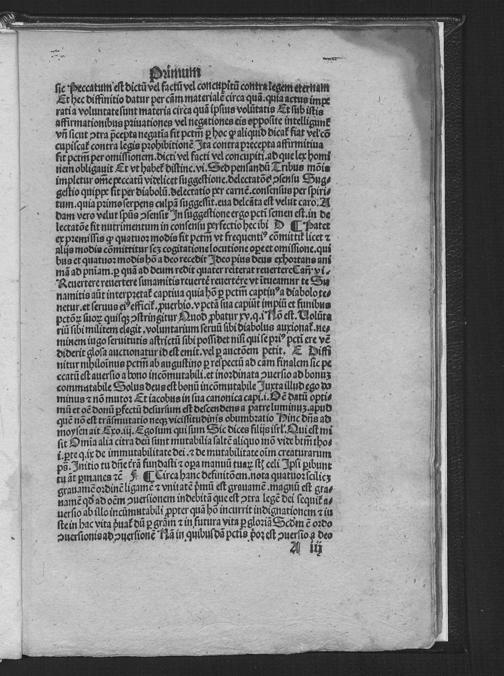 Primum
sic Peccatum est dictū vel factū vel concupitū contra legem eternam
Et hec diffinitio datur per cām materialē circa quā. quia actus impe
rati a voluntate sunt materia circa quā ipsius volūtatis Et sub istis
affirmationibus priuationes vel negationes eis opposite intelligunt̄
vn̄ sicut ꝯtra p̄cepta negatia fit pctm̄ ꝑ hoc ꝙ aliquid dicat̄ fiat vel ꝯ
cupiscat̄ contra legis prohibitionē Ita contra precepta affirmitiua
fit pctm̄ per omissionem. dicti vel facti vel concupiti. ad que lex homi
nem obligauit Et vt habet̄ distinc. vi. Sed pensandū Tribus mōis
impletur om̄e peccatū videlicet suggestione. delectatōe ꝯsensu Sug⸗
gestio quippe fit per diabolū. delectatio per carnē. consensus per spiri
tum. quia primo serpens culpā suggessit. eua delcāta est velut caro. A
dam vero velut spūs ꝯsensit In suggestione ergo pcti semen est. in de
lectatōe fit nutrimentum in consensu perfectio hec ibi D ¶ Patet
ex premissis ꝙ quatuor modis fit pctm̄ vt frequentiꝰ cōmittit̄ licet ⁊
alijs modis cōmittatur scꝫ cogitatione locutione oꝑe et omissione. qui
bus et quatuor modis hō a deo recedit Ideo pius deus exhortans ani
mā ad pn̄iam. ꝑ quā ad deum redit quater reiterat reuertere Can̄. vi.
Reuertere reuertere sunamitis reuertē reuertē vt ītueamur te Su
namitis aūt interpretat̄ captiua quia hō ꝑ pctm̄ captiuꝰ a diabolo te⸗
netur. et seruus eiꝰ efficit̄. prouerbio. v pctā sua capiūt impiū et funibus
pctōꝝ suoꝝ quisqꝫ ꝯstringitur Quod ꝓbatur xv. q. i Nō est. Volūta
riū sibi militem elegit. voluntarium seruū sibi diabolus auxionat̄. ne⸗
minem iugo seruitutis astrictū sibi possidet nisi qui se priꝰ pcti ere vē
diderit glosa auctionatur id est emit. vel ꝑ auctōem petit. E Diffi
nitur nihilomin̄ pctm̄ ab augustino ꝑ respectū ad cām finalem sic pe
ccatū est auersio a bono incōmutabili. et inordinata ꝯuersio ad bonuꝫ
commutabile Solus deus est bonū incōmutabile Juxta illud ego do
minus ⁊ nō mutor Et iacobus in sua canonica capi. i. Oē datū opti⸗
mū et oē donū ꝑfectū desursum est descendens a patre luminuꝫ. apud
quē nō est trāsmutatio neqꝫ vicissitudinis obumbratio Hinc dn̄s ad
moysen ait Exo. iii. Ego sum qui sum Sic dices filijs isrl̄. Qui est mi
sit Om̄ia alia citra deū sunt mutabilia saltē aliquo mō vide btm̄ tho⸗
i. ꝑte q. ix de immutabilitate dei. ⁊ de mutabilitate oīm creaturarum
ps̄. Initio tu dn̄e t̄rā fundasti ⁊ oꝑa manuū tuaꝝ st̄ celi Ipsi ꝑibunt
tu aūt ꝑmanes ⁊c̄ F ¶ Circa hanc definitōem. nota quatuor scilicꝫ
grauamē ordinē ligamē ⁊ vnitatē Pmū est grauamē. magnū est gra⸗
namē qḋ ad oēm ꝯuersionem indebitā que est ꝯtra legē dei sequit̄ a⸗
uersio ab illo incōmutabili. ꝓpter quā hō incurrit indignationem ⁊ iu
ste in hac vita p̄uat̄ dū ꝑ grām ⁊ in futura vita ꝑ gloriā Scdm̄ ē ordo
ꝯuersionis ad ꝯuersionē Nā in quibusdā pctis p̄or est ꝯuersio a deo
A iij